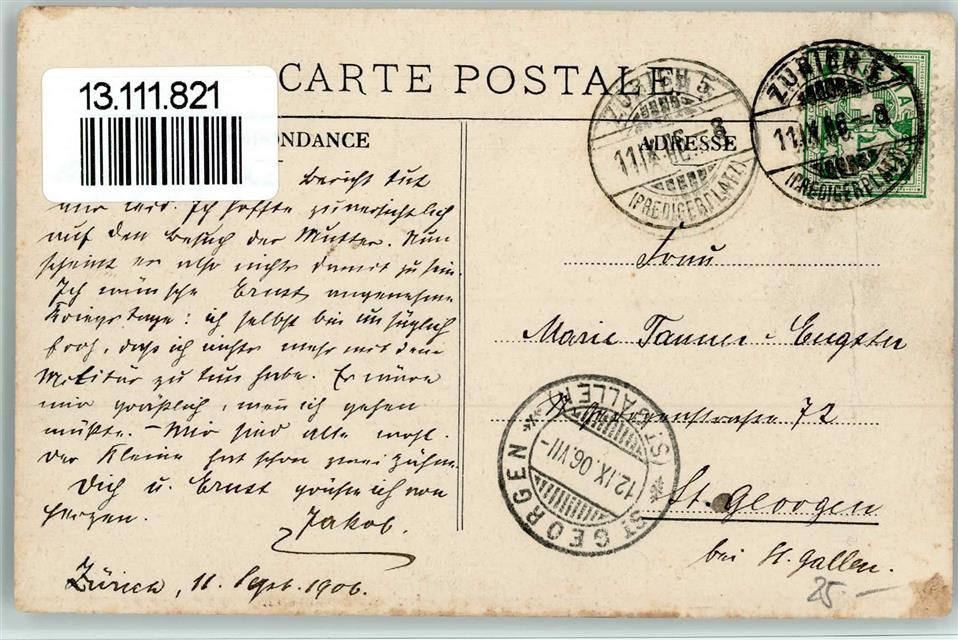 CARTE POSTALE
13.111.821
ONDANCE
ADRESSE
ZÜRICH 5
11.IX.06.-8
(PREDIGERPLATZ)
ZÜRICH 5
11.IX.06.-8
(PREDIGERPLATZ)
Bericht tut
mir leid. Ich hoffte zuversichtlich
auf den Besuch der Mutter. Nun
scheint es also nichts damit zu sein.
Ich wünsche Ernst angenehme
Kriegstage: ich selbst bin unsäglich
froh, dass ich nichts mehr mit dem
Militär zu tun habe. Es wäre
mir grässlich, wenn ich gehen
müsste. – Wir sind alle wohl.
Der Kleine hat schon zwei Zähne.
Dich u. Ernst grüsse ich von
Herzen.
Jakob.
Zürich, 11. Sept. 1906.
Frau
Marie Tanner-Engster
strasse 72
St. Georgen
bei St. Gallen.
ST GEORGEN
(ST GALLEN)
12.IX.06.VII-
25.-